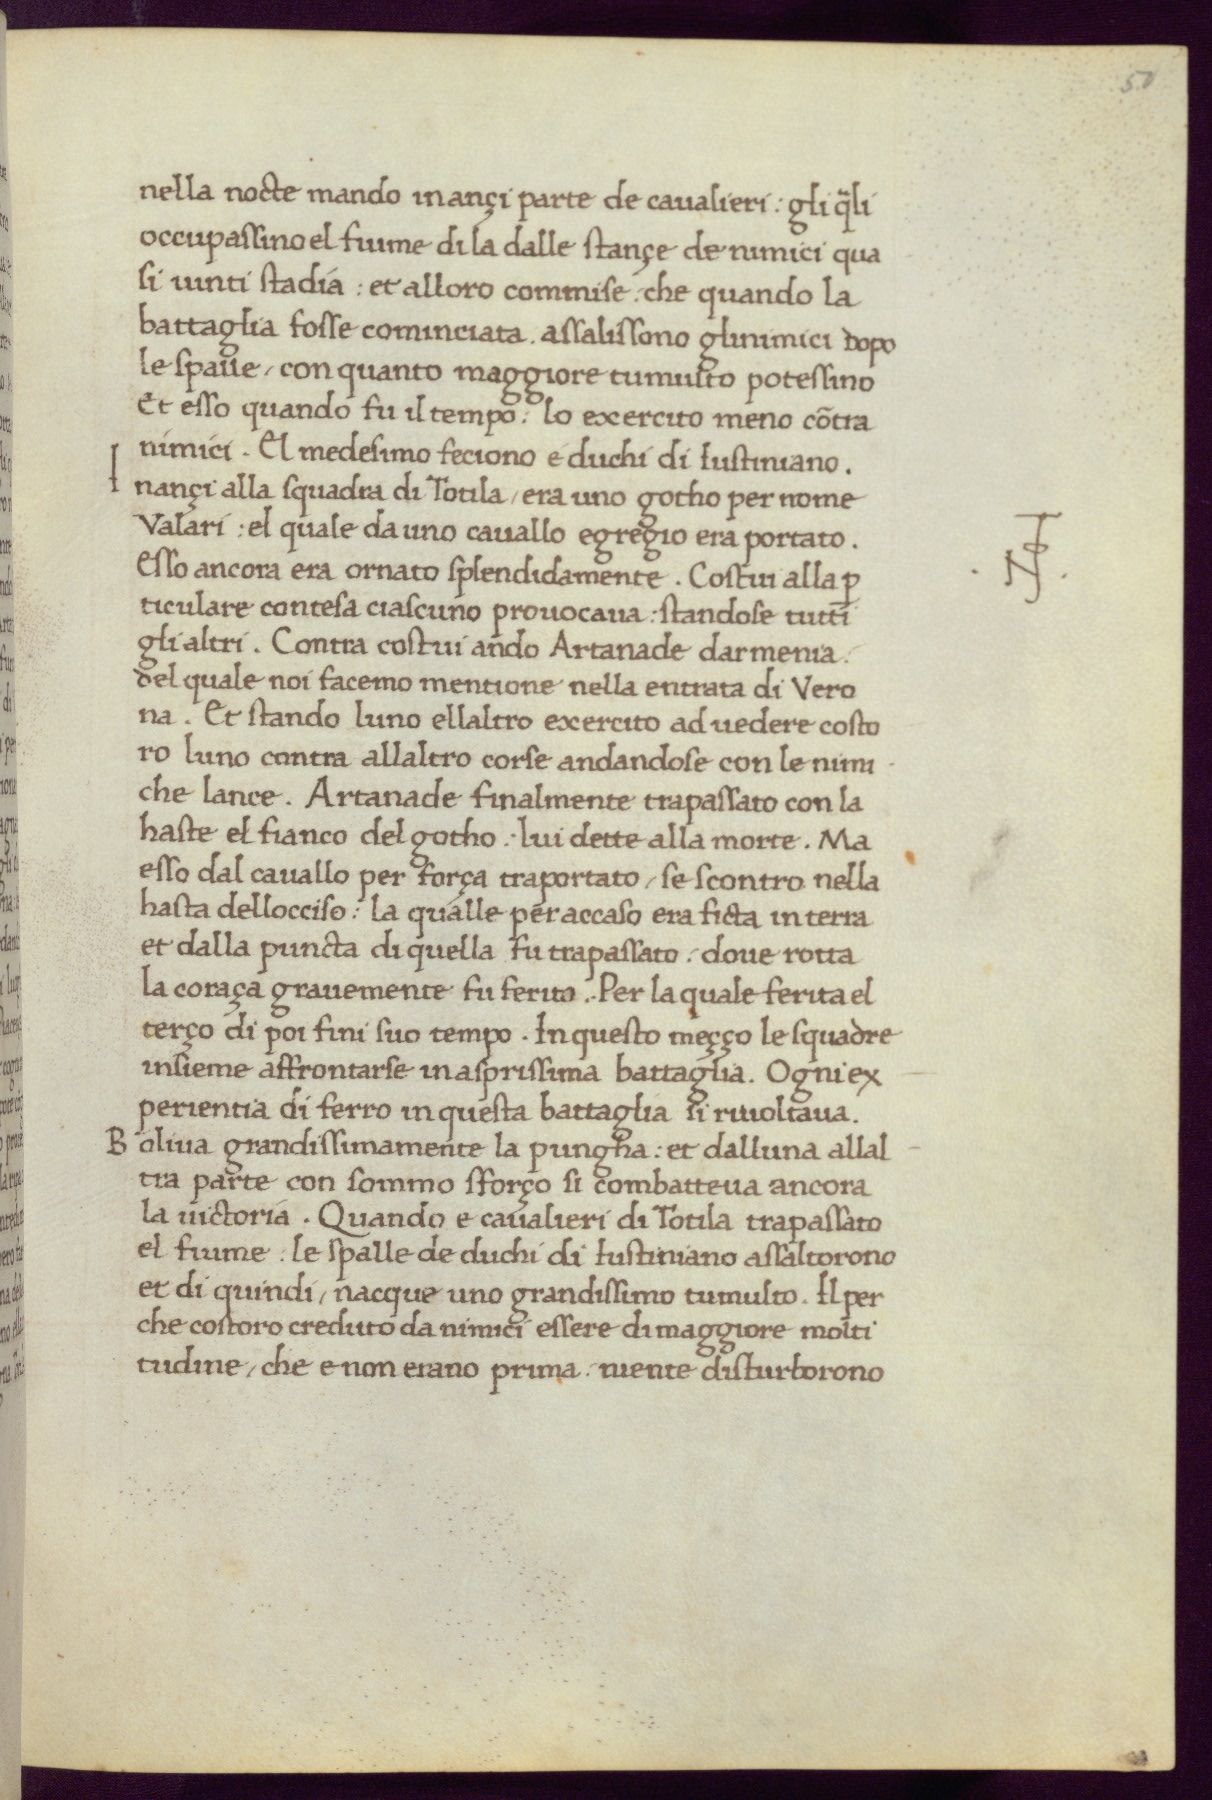 50
nella nocte mando inançi parte de caualieri : gli q̃li
occupassino el fiume di la dalle stançe de nimici qua
si uinti stadia : et alloro commise . che quando la
battaglia fosse cominciata . assalissono glinimici dopo
le spalle / con quanto maggiore tumulto potessino
Et esso quando fu il tempo : lo exercito meno cõtra
nimici . El medesimo feciono e duchi di Iustiniano .
I nançi alla squadra di Totila / era uno gotho per nome
Valari : el quale da uno cauallo egregio era portato .
Esso ancora era ornato splendidamente . Costui alla ꝑ
ticulare contesa ciascuno prouocaua : standose tutti
gli altri . Contra costui ando Artanade darmenia .
del quale noi facemo mentione nella entrata di Vero
na . Et stando luno ellaltro exercito ad uedere costo
ro luno contra allaltro corse andandose con le nimi
che lance . Artanade finalmente trapassato con la
haste el fianco del gotho : lui dette alla morte . Ma
esso dal cauallo per força traportato / se scontro nella
hasta dellocciso : la qualle per accaso era ficta in terra
et dalla puncta di quella fu trapassato : doue rotta
la coraça grauemente fu ferito . Per la quale ferita el
terço di poi fini suo tempo . In questo meçço le squadre
insieme affrontarse in asprissima battaglia . Ogni ex
perientia di ferro in questa battaglia si riuoltaua .
B oliua grandissimamente la pungha : et dalluna allal
tra parte con sommo sforço si combatteua ancora
la uictoria . Quando e caualieri di Totila trapassato
el fiume : le spalle de duchi di Iustiniano assaltorono
et di quindi / nacque uno grandissimo tumulto . Il per
che costoro creduto da nimici essere di maggiore molti
tudine / che e non erano prima . niente disturborono